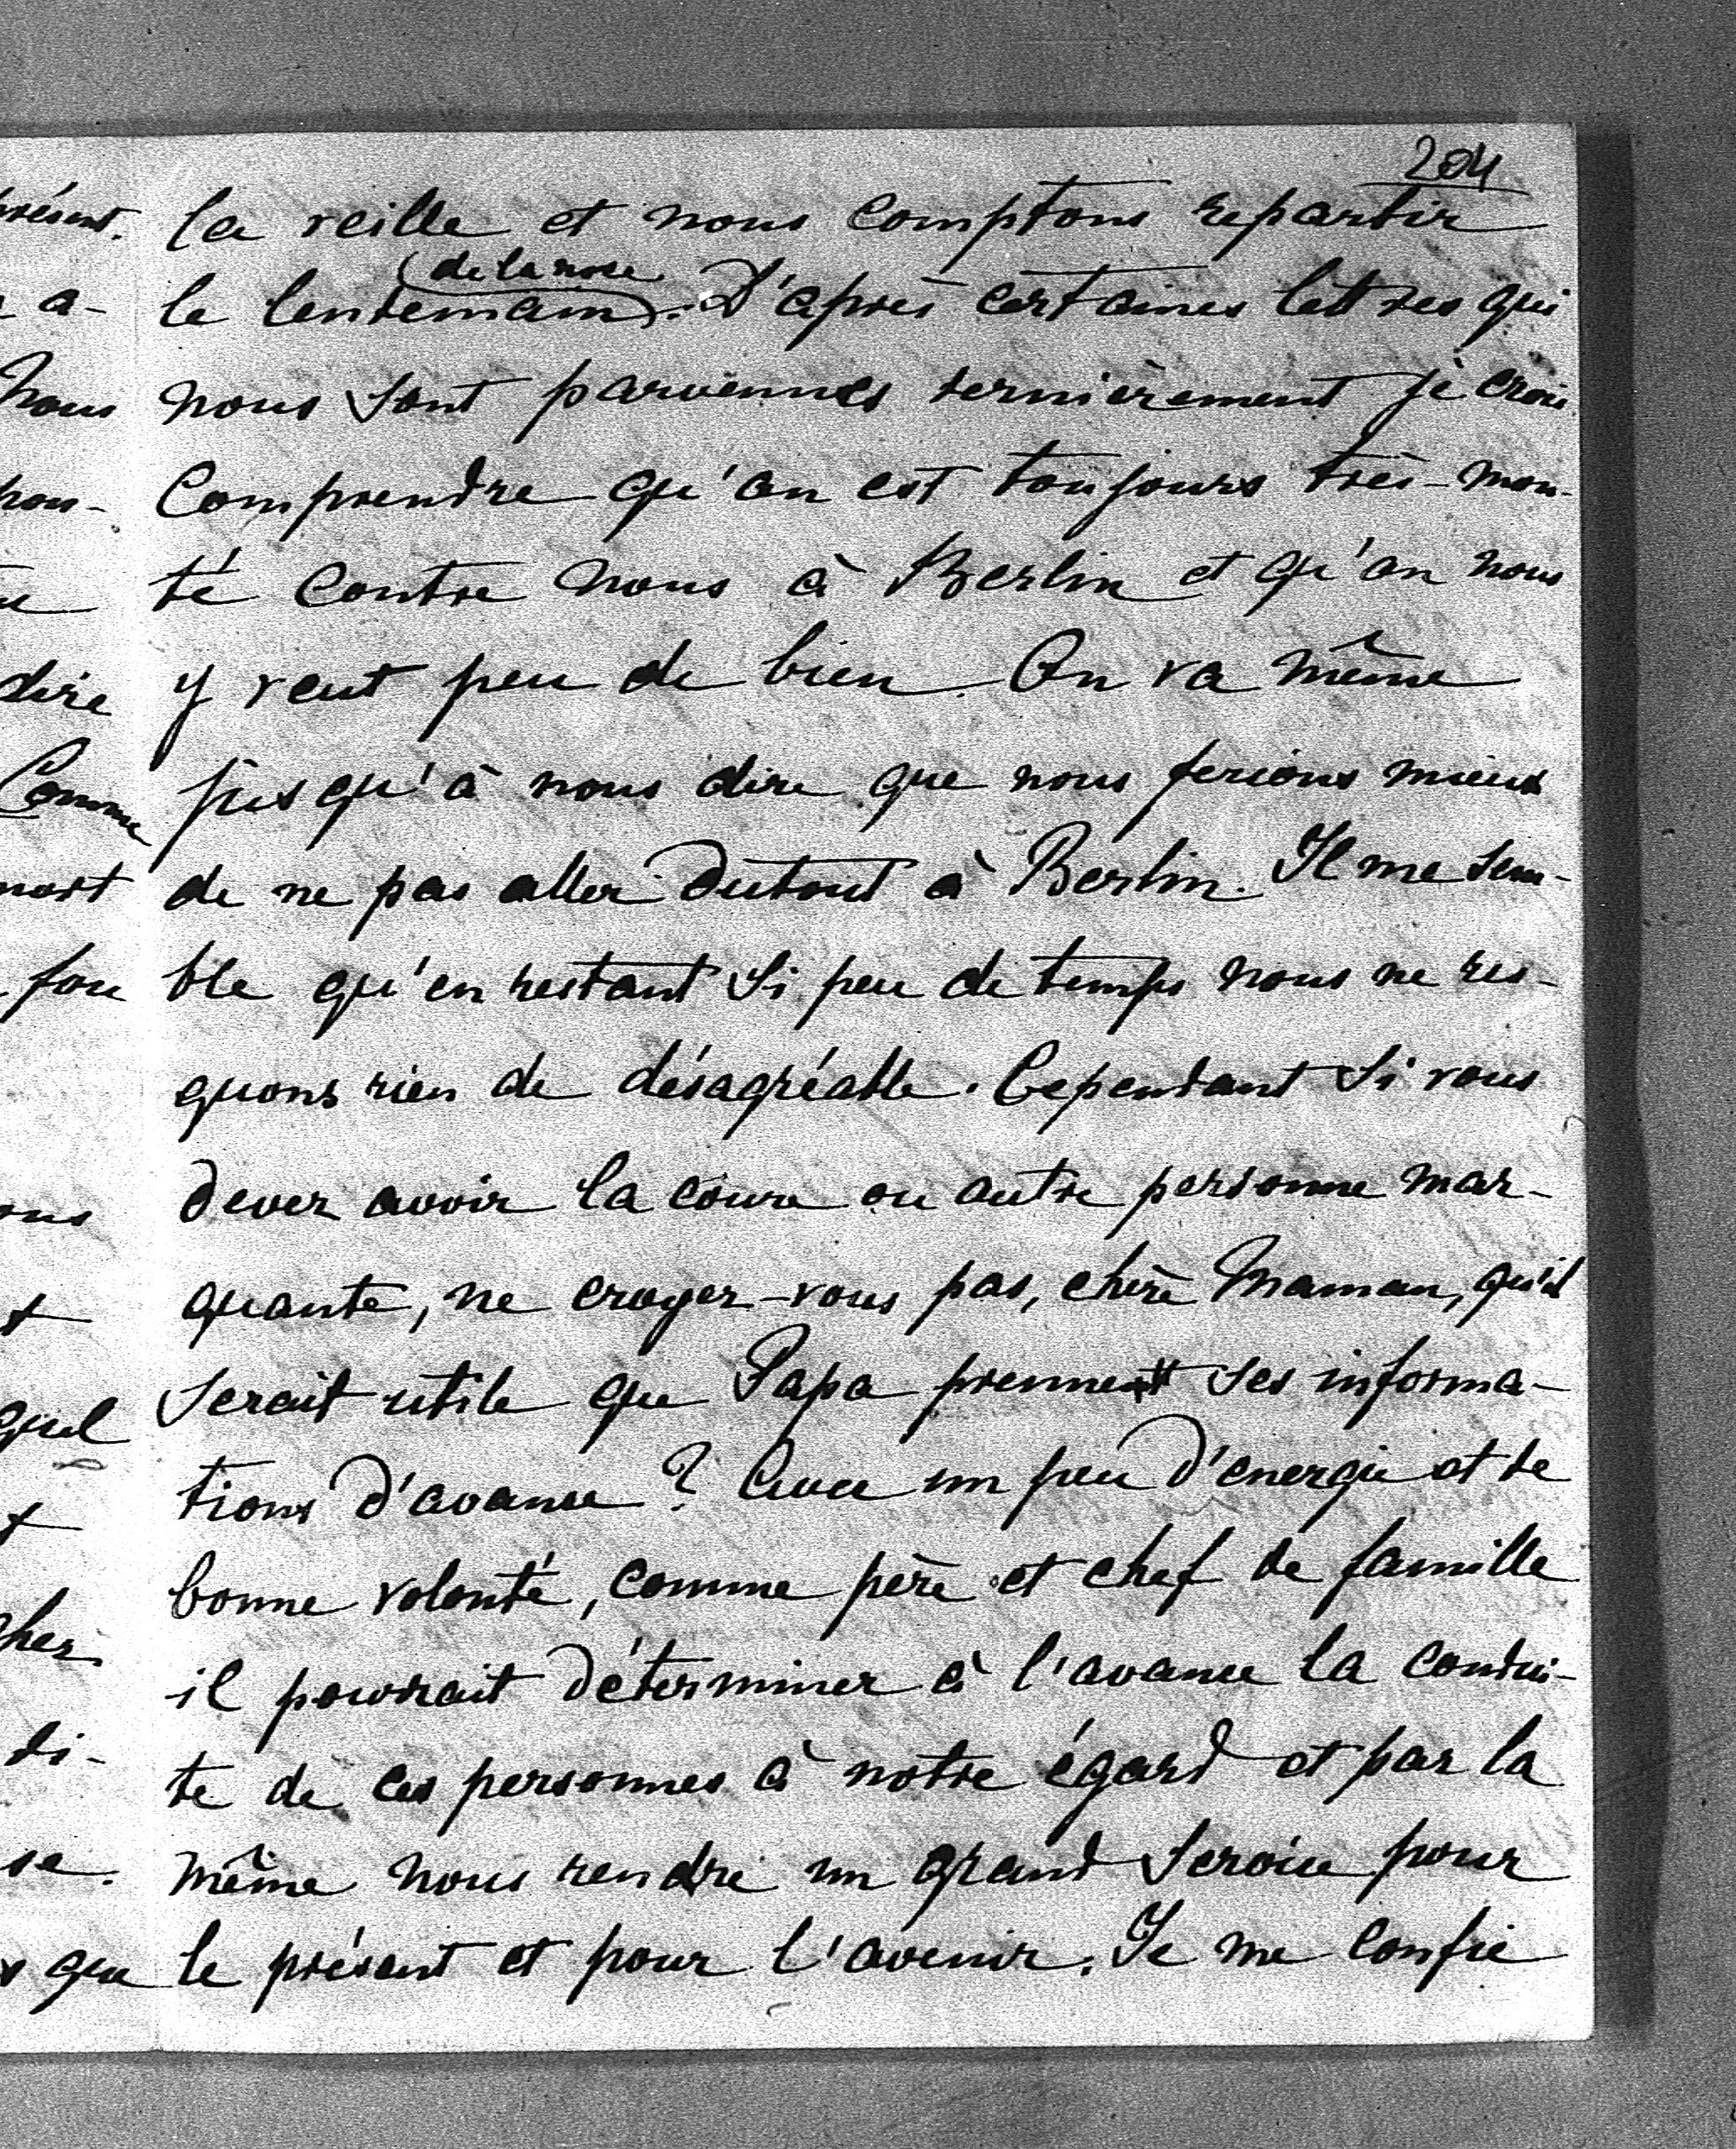 204
la veille et nous comptons repartir
(de la noce
le lendemain). D'après certaines lettres qui
nous sont parvennes dernièrement je crois
comprendre qu'on est toujours très-mon-
té contre nous à Berlin et qu'on nous
y veut peu de bien. On va même
jusqu'à nous dire que nous ferions mieux
de ne pas aller dutout à Berlin. Il me sem-
ble qu'en restant si peu de temps nous ne ris-
quons rien de désagréable. Cependant si vous
devez avoir la cour ou autre personne mar-
quante, ne croyez-vous pas, chère Maman, qu'il
serait utile que Papa prenne ses informa-
tions d'avance? Avec un peu d'energie et de
bonne volonté, comme père et chef de famille
il pourrait déterminer à l'avance la condui-
te de ces personnes à notre égard et par la
même nous rendre un grand service pour
le présent et pour l'avenir. Je me confie
présent.
a-
Nous
dire
Comme
fou
quel
di-
se.
que